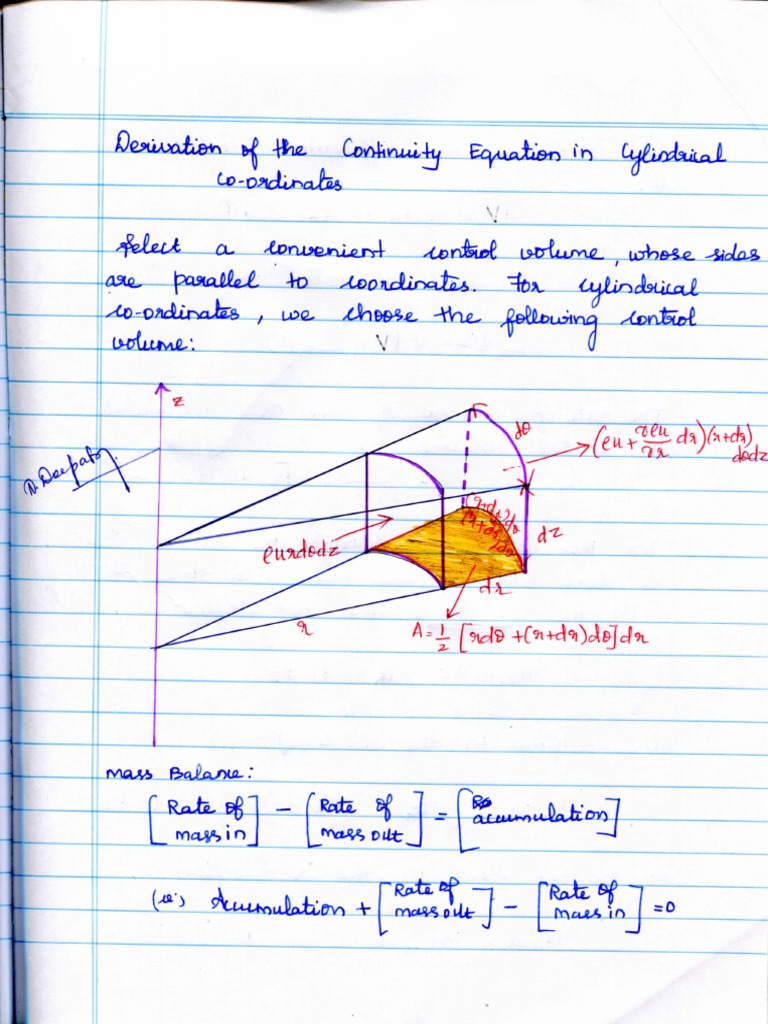 Derivation of the Continuity Equation in Cylindrical
co-ordinates
Select a convenient control volume, whose sides
are parallel to coordinates. For cylindrical
co-ordinates, we choose the following control
volume:
z
dθ
(ρu + ∂ρu/∂r dr)(r+dr)
dθdz
ρurdθdz
(r+dr)dθ
(r+dr)dθ
dz
dr
r
A = 1/2 [rdθ + (r+dr)dθ]dr
Mass Balance:
[Rate of mass in] − [Rate of mass out] = [accumulation]
(ie.) Accumulation + [Rate of mass out] − [Rate of mass in] = 0